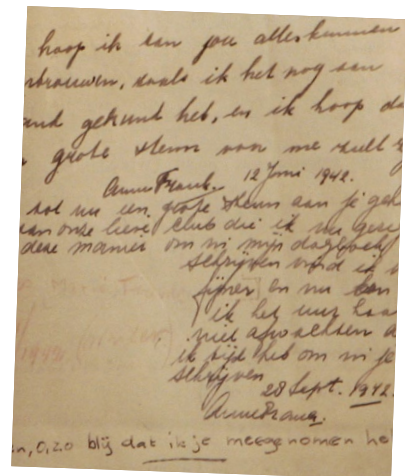 hoop ik aan jou alles kunnen
vertrouwen, zoals ik het nog aan
gekund heb, en ik hoop da
grote steun voor me zult
Anne Frank. 12 Juni 1942.
tot nu een grote steun aan je geh
aan onze lieve club die ik nu gesc
deze manier om in mijn dagboek
schrijven vind ik v
fijner en nu ben
ik het uur haa
niet afwachten
ik tijd heb om in je
schrijven
28 Sept. 1942.
Anne Frank.
n, o, zo blij dat ik je meegenomen he